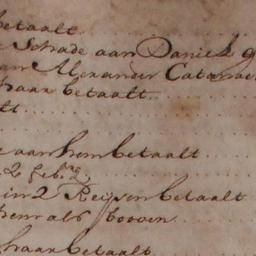 betaalt
Schade aan Daniel
Alexander
haar betaalt
aan hem betaalt
2 feb.
in 2 Reijsen betaalt
hem als booven
haar betaalt